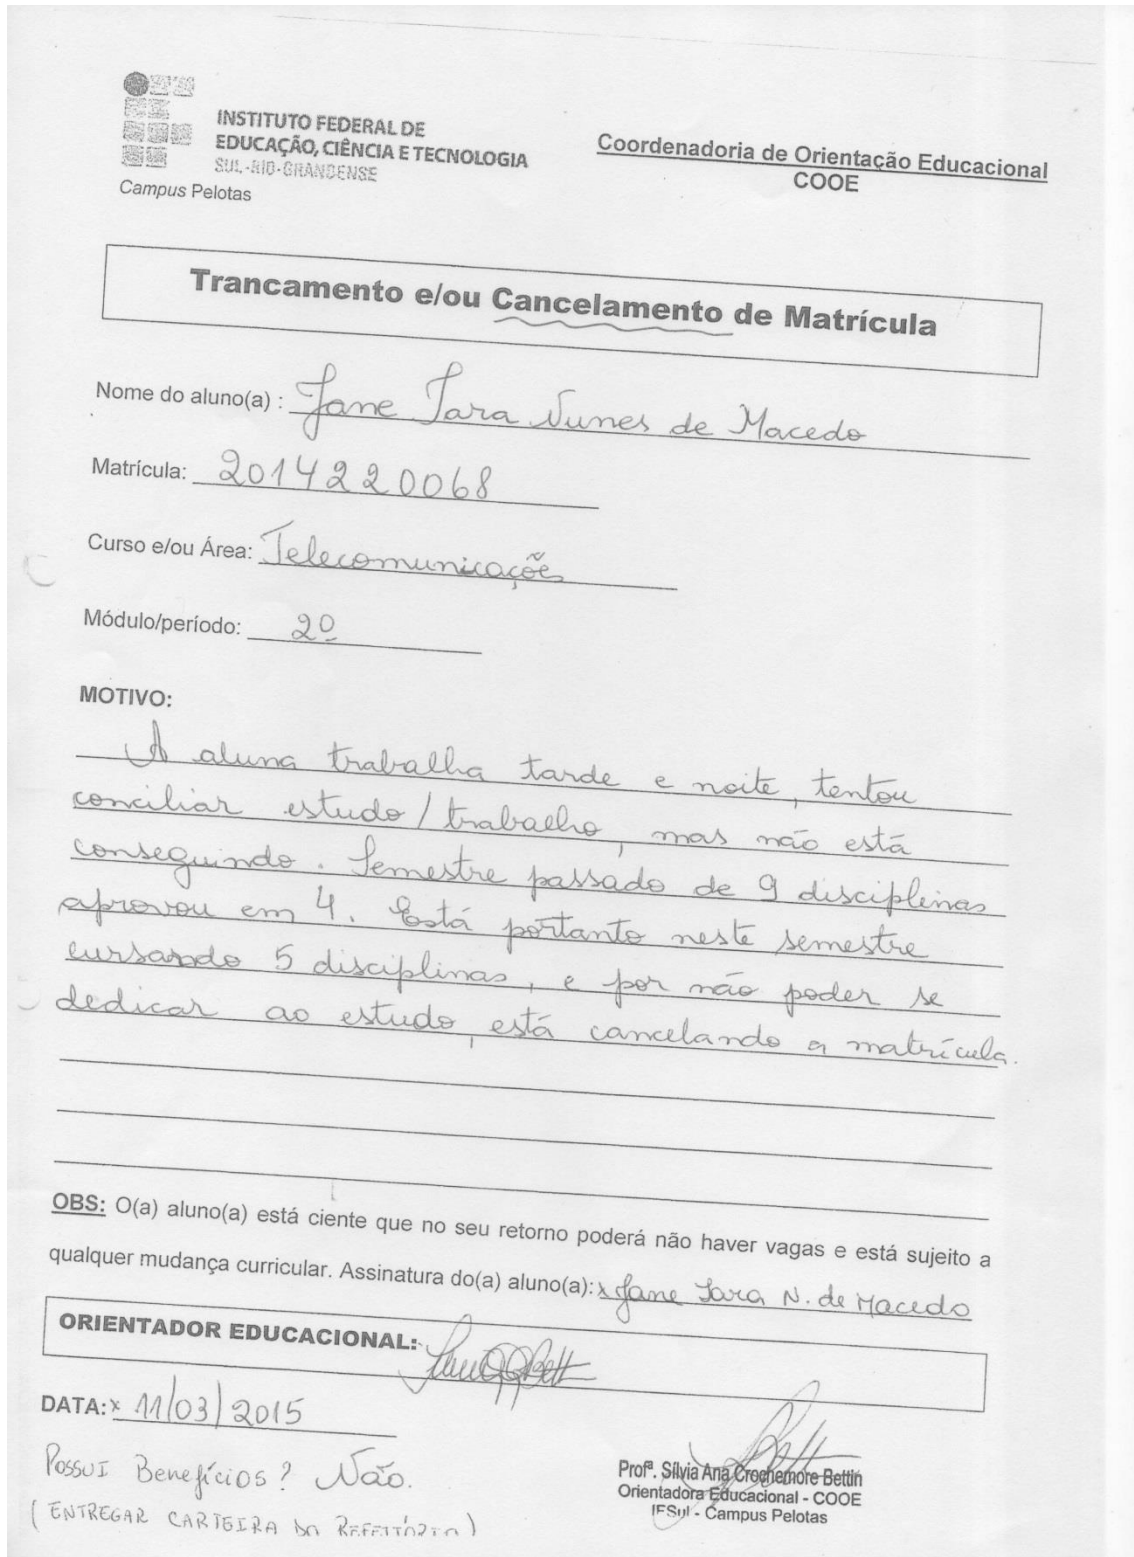 INSTITUTO FEDERAL DE
EDUCAÇÃO, CIÊNCIA E TECNOLOGIA
SUL-RIO-GRANDENSE
Campus Pelotas
Coordenadoria de Orientação Educacional
COOE
Trancamento e/ou Cancelamento de Matrícula
Nome do aluno(a) : Jane Iara Nunes de Macedo
Matrícula: 20142220068
Curso e/ou Área: Telecomunicações
Módulo/período: 2º
MOTIVO:
A aluna trabalha tarde e noite, tentou
conciliar estudo/trabalho, mas não está
conseguindo. Semestre passado de 9 disciplinas
aprovou em 4. Está portanto neste semestre
cursando 5 disciplinas, e por não poder se
dedicar ao estudo, está cancelando a matrícula.
OBS: O(a) aluno(a) está ciente que no seu retorno poderá não haver vagas e está sujeito a
qualquer mudança curricular. Assinatura do(a) aluno(a): x Jane Iara N. de Macedo
ORIENTADOR EDUCACIONAL:
DATA: x 11/03/2015
Possui Benefícios? Não.
(ENTREGAR CARTEIRA DO REFEITÓRIO)
Profª. Sílvia Ana Crochemore Bettin
Orientadora Educacional - COOE
IFSul - Campus Pelotas